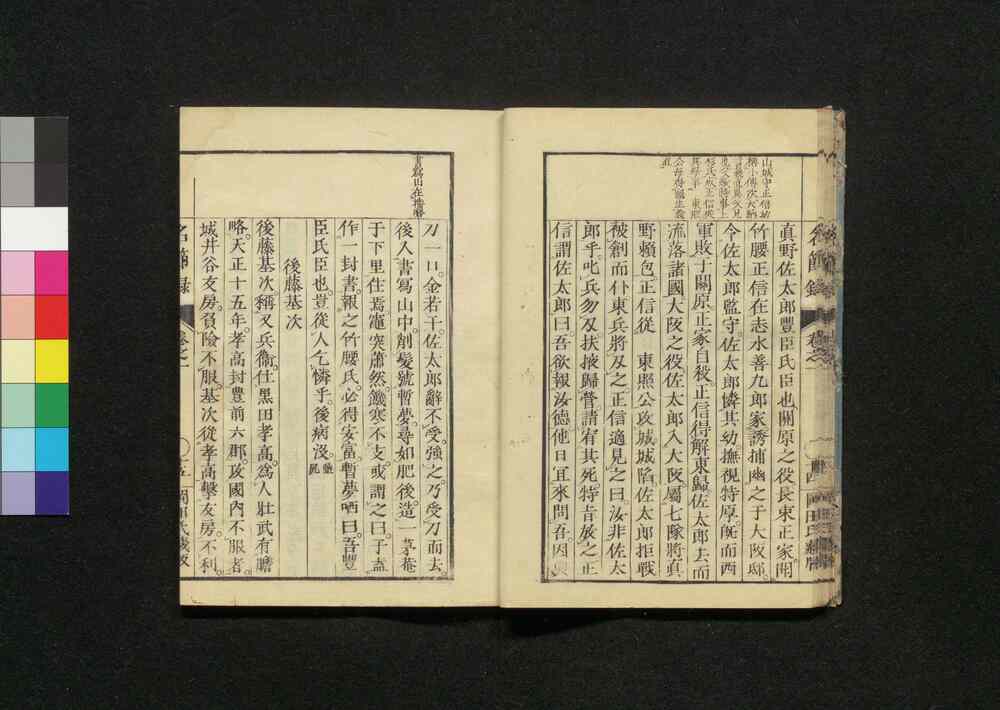 眞野佐太郎豐臣氏臣也關原之役長束正家閉
竹腰正信在志水善九郎家誘捕幽之于大阪邸
令佐太郎監守佐太郎憐其幼撫視特厚既而西
軍敗于關原正家自殺正信得解東歸佐太郎去而
流落諸國大阪之役佐太郎入大阪屬七隊將眞
野頼包正信從 東照公攻城城陷佐太郎拒戰
被創而仆東兵將及之正信適見之曰汝非佐太
郎乎叱兵勿及扶掖歸營請宥其死特旨放之正
信謂佐太郎曰吾欲報汝德他日宜來問吾因與
書寫山在播磨
刀一口金若干佐太郎辭不受強之乃受刀而去
後入書寫山中削髮號暫夢尋如肥後造一茅菴
于下里住焉竈突蕭然饑寒不支或謂之曰子盍
作一封書報之竹腰氏必得安富暫夢哂曰吾豐
臣氏臣也豈從人乞憐乎後病沒
後藤基次
後藤基次稱又兵衞仕黑田孝高爲人壯武有膽
略天正十五年孝高封豊前六郡攻國內不服者
城井谷友房負險不服基次從孝高擊友房不利
名節錄 卷之一